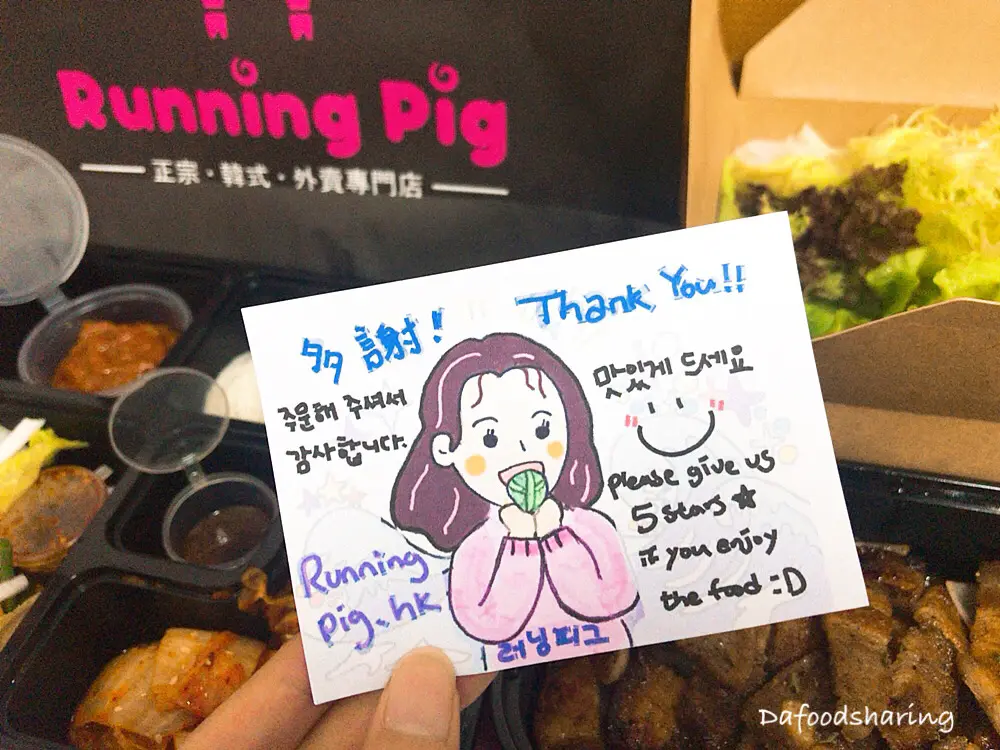 Running Pig
正宗·韓式·外賣專門店
多謝!
Thank You!!
주문해 주셔서
감사합니다.
맛있게 드세요
please give us
5 stars ☆
if you enjoy
the food :D
Running
pig.hk
러닝피그
Dafoodsharing